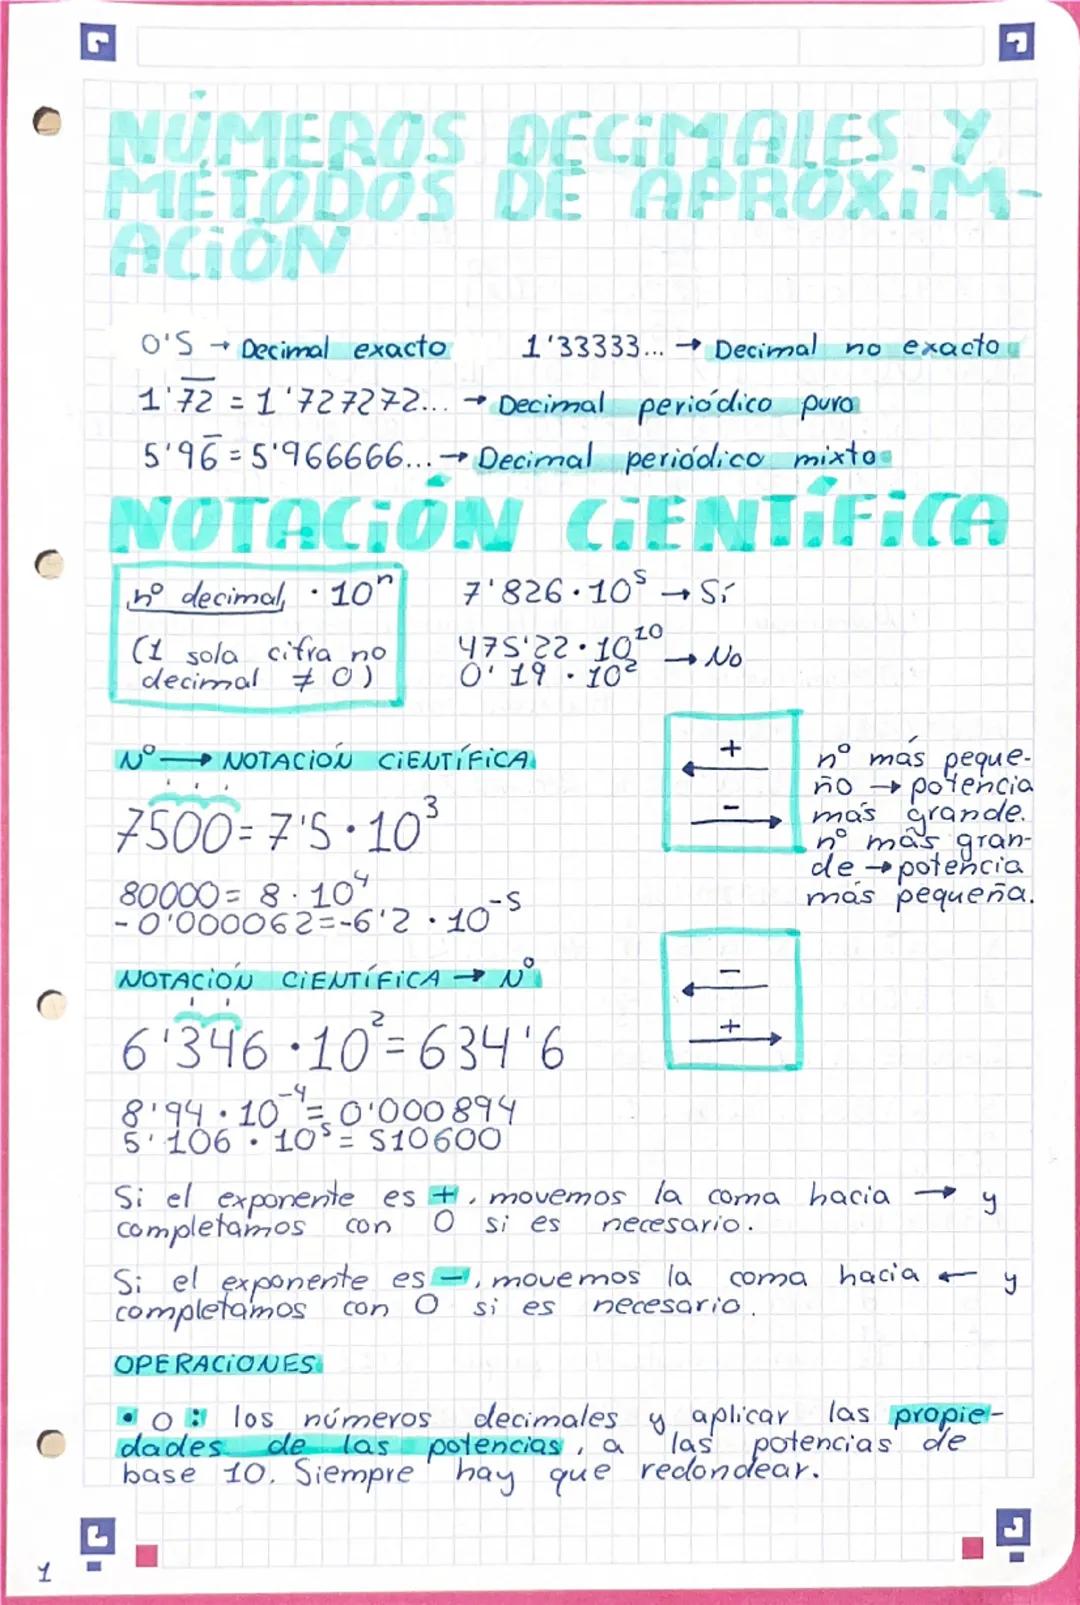 NÚMEROS DECIMALES Y
MÉTODOS DE APROXIM-
ACIÓN
0'5 → Decimal exacto
1'33333... → Decimal no exacto
1'7̅2̅ = 1'727272... → Decimal periódico puro
5'96̅ = 5'966666... → Decimal periódico mixto
NOTACIÓN CIENTÍFICA
nº decimal · 10ⁿ
(1 sola cifra no
decimal ≠ 0)
7'826 · 10⁵ → Sí
475'22 · 10¹⁰
0'19 · 10² → No
Nº → NOTACIÓN CIENTÍFICA
7500 = 7'5 · 10³
80000 = 8 · 10⁴
-0'000062 = -6'2 · 10⁻⁵
+
←
-
→
nº más peque-
ño → potencia
más grande.
nº más gran-
de → potencia
más pequeña.
NOTACIÓN CIENTÍFICA → Nº
6'346 · 10² = 634'6
8'94 · 10⁻⁴ = 0'000894
5'106 · 10⁵ = 510600
-
←
+
→
Si el exponente es +, movemos la coma hacia → y
completamos con 0 si es necesario.
Si el exponente es -, movemos la coma hacia ← y
completamos con 0 si es necesario.
OPERACIONES
· o : los números decimales y aplicar las propie-
dades de las potencias, a las potencias de
base 10. Siempre hay que redondear.
1